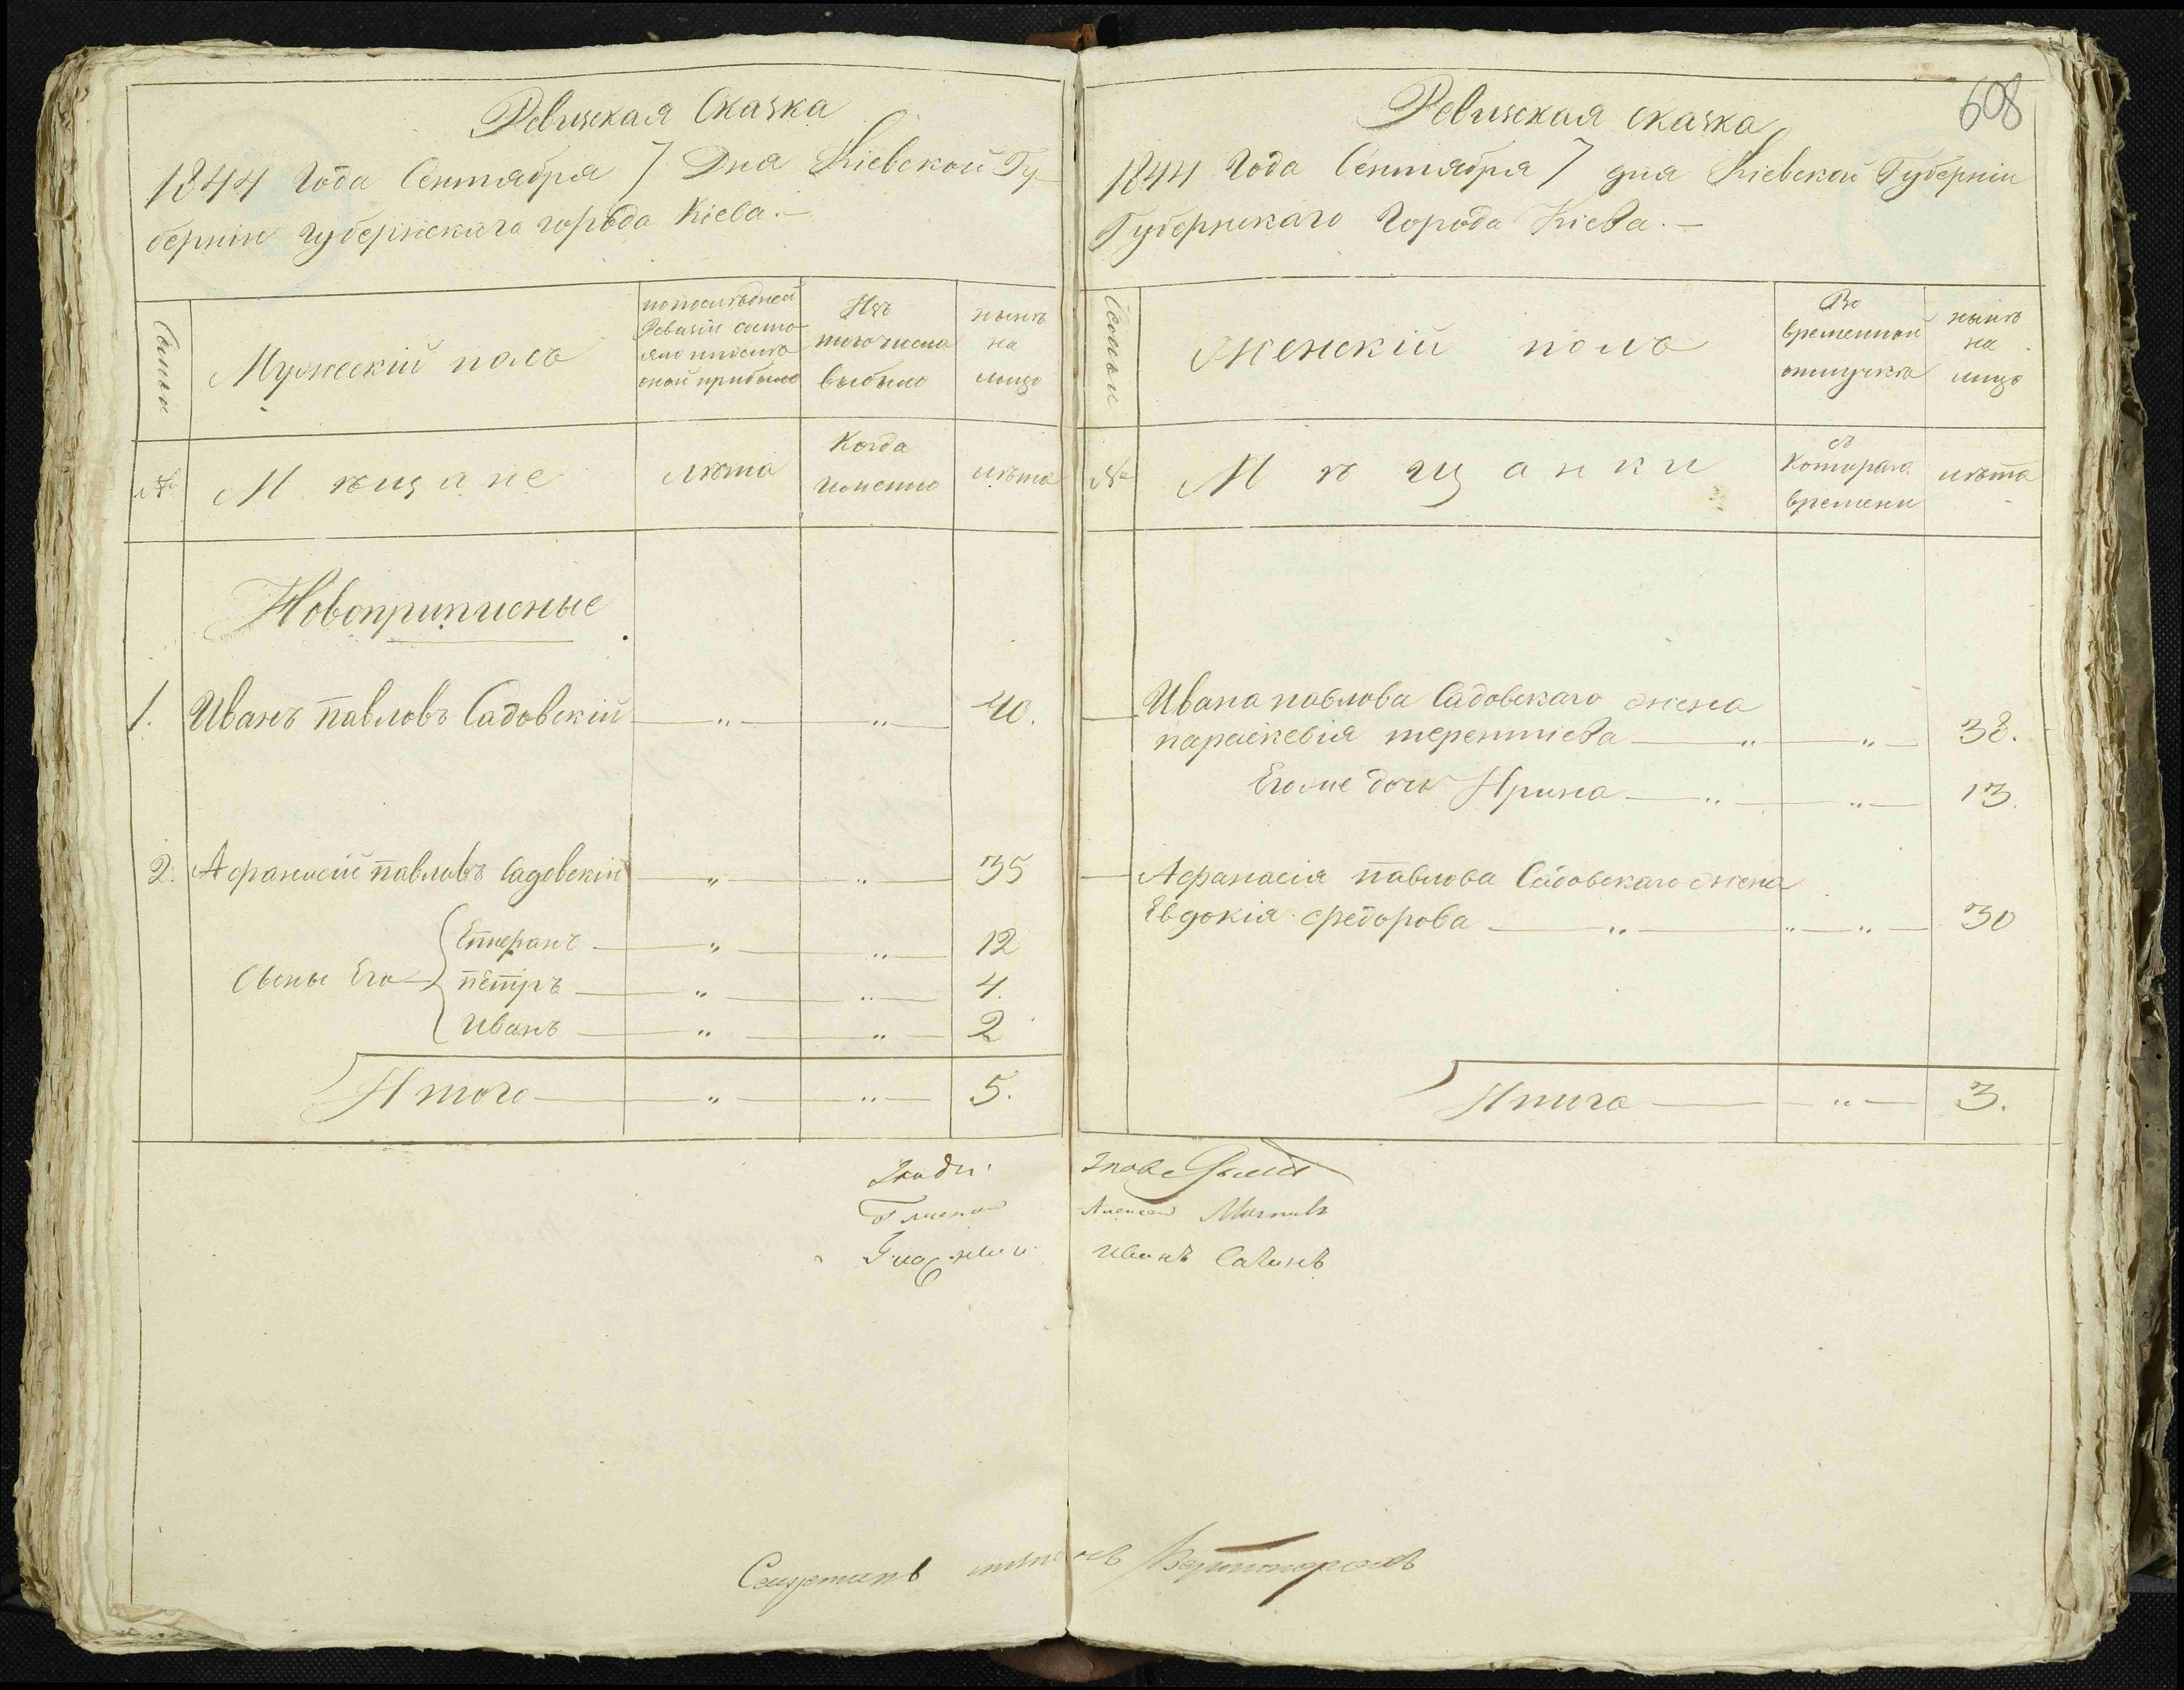 Ревизская Сказка
1844 Года Сентября 7 Дня Кіевской Гу-
берніи губернскаго города Кіева.—
Семьи
Мужескій полъ
по последней
Ревизіи состо-
яло и после
оной прибыло
Изъ
того числа
выбыло
ныне
на
лицо
№
Мѣщане
лѣта
Когда
именно
лѣта
Новоприписные
1. Иванъ павловъ Садовскій — „ — „ — 40.
2. Афанасій павловъ Садовскій — „ — „ — 35
Сыны Его
Степанъ — „ — „ — 12
пётръ — „ — „ — 4.
Иванъ — „ — „ — 2
Итого — „ — „ — 5.
608
Ревизская сказка
1844 Года Сентября 7 дня Кіевской Губерніи
Губернскаго Города Кіева.—
Семьи
Женскій полъ
Во
временной
отлучкѣ
нынѣ
на
лицо
№
Мѣщанки
съ
Котораго
времени
лѣта
Ивана павлова Садовскаго жена
параскевія терентіева — „ — „ — 38.
Его же дочь Ирина — „ — „ — 13.
Афанасія павлова Садовскаго жена
Евдокія федорова — „ — „ — „ — 30
Итого — „ — 3.
Иванъ